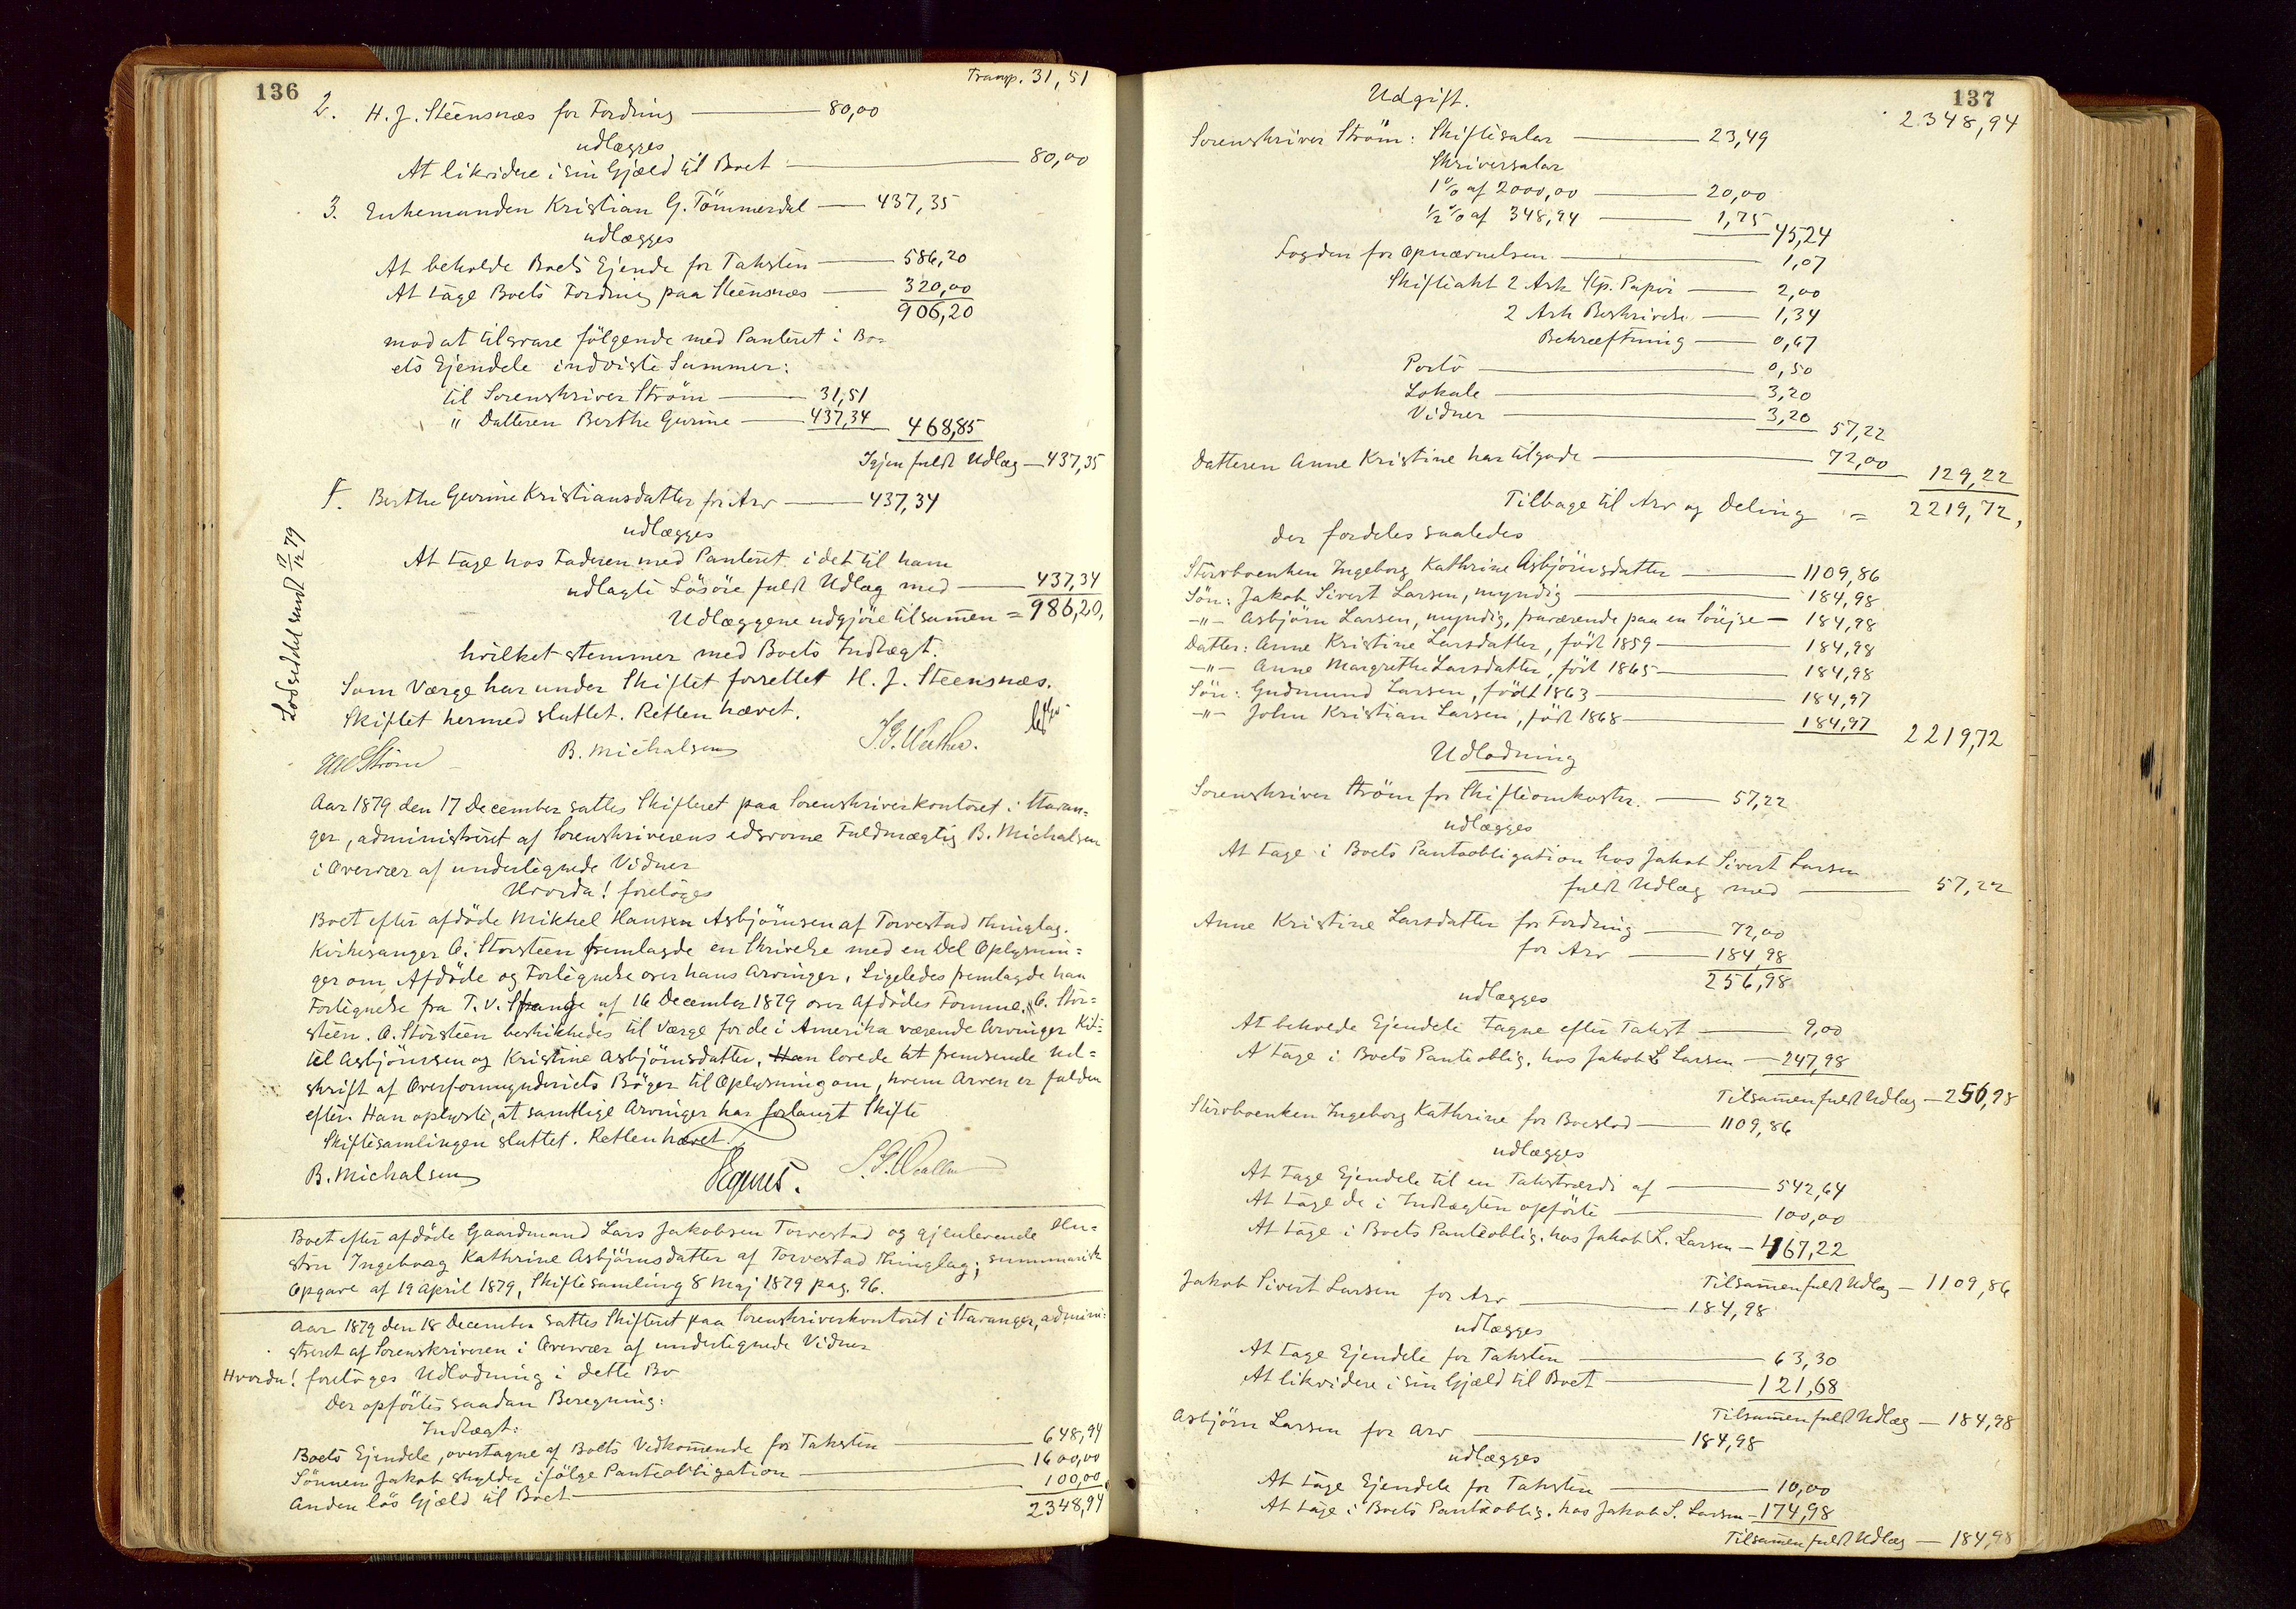 136
Transp. 31,51
2. H. J. Steensnæs for Fordring — 80,00
udlægges
At likvidere i sin Gjæld til Boet — 80,00
3. Enkemanden Kristian G. Tömmerdal — 437,35
udlægges
At beholde Boets Ejende for Taksten — 586,20
At tage Boets Fordring paa Steensnæs — 320,00
906,20
mod at tilsvare følgende med Panteret i Bo-
ets Ejendele indviste Summer:
til Sorenskriver Ström — 31,51
" Datteren Berthe Gurine — 437,34 468,85
Igjen fuldt Udlæg — 437,35
4. Berthe Gurine Kristiansdatter for Arv — 437,34
udlægges
At tage hos Faderen med Panteret i det til ham
udlagte Lösöre fuldt Udlæg med — 437,34
Udlæggene udgjöre tilsammen = 986,20,
hvilket stemmer med Boets Indtægt.
Som Værge har under Skiftet forrettet H. J. Steensnæs.
Skiftet hermed sluttet. Retten hævet.
Lodseddel sendt 17/12 79
Ström
B. Michalsen
Aar 1879 den 17 December sattes Skifteret paa Sorenskriverkontoret i Stavan-
ger, administreret af Sorenskriverens edsvorne Fuldmægtig B. Michalsen
i Overvær af undertegnede Vidner
Hvorda! foretoges
Boet efter afdöde Mikkel Hansen Asbjörnsen af Torvestad Thinglag.
Kirkesanger O. Storsteen fremlagde en Skrivelse med en Del Oplysnin-
ger om Afdöde og Fortegnelse over hans Arvinger. Ligeledes fremlagde han
Fortegnelse fra T. V. Stange af 16 December 1879 over Afdödes Formue. O. Stor-
steen. O. Storsteen beskikkedes til Værge for de i Amerika værende Arvinger Kit-
til Asbjörnsen og Kristine Asbjörnsdatter. Han lovede at fremsende Ud-
skrift af Overformynderiets Böger til Oplysning om, hvem Arven er falden
efter. Han oplyste, at samtlige Arvinger har forlangt Skifte
Skiftesamlingen sluttet. Retten hævet.
B. Michalsen
Boet efter afdöde Gaardmand Lars Jakobsen Torvestad og gjenlevende Hu-
stru Ingeborg Kathrine Asbjörnsdatter af Torvestad Thinglag; summarisk
Opgave af 19 April 1879, Skiftesamling 8 Maj 1879 pag. 96.
Aar 1879 den 18 December sattes Skifteret paa Sorenskriverkontoret i Stavanger, admini-
streret af Sorenskriveren i Overvær af undertegnede Vidner
Hvorda! foretoges Udlodning i dette Bo
Der opförtes saadan Beregning:
Indtægt:
Boets Ejendele, overtagne af Boets Vedkommende for Taksten — 648,94
Sönnen Jakob skylder ifölge Panteobligation — 1600,00
Anden lös Gjæld til Boet — 100,00
2348,94
137
Udgift.
2348,94
Sorenskriver Ström: Skiftesalar — 23,49
Skriversalar
1% af 2000,00 — 20,00
1/2% af 348,94 — 1,75 45,24
Fogden for Opnævnelsen — 1,07
Skifteakt 2 Ark Stp. Papir — 2,00
2 Ark Beskrivelse — 1,34
Bekræftning — 0,67
Porto — 0,50
Lokale — 3,20
Vidner — 3,20 57,22
Datteren Anne Kristine har tilgode — 72,00 129,22
Tilbage til Arv og Deling = 2219,72,
der fordeles saaledes
Stervboenken Ingeborg Kathrine Asbjörnsdatter — 1109,86
Sön: Jakob Sivert Larsen, myndig — 184,98
-"- Asbjörn Larsen, myndig, fraværende paa en Sörejse — 184,98
Datter: Anne Kristine Larsdatter, født 1859 — 184,98
-"- Anne Margrethe Larsdatter, födt 1865 — 184,98
Sön: Gudmund Larsen, födt 1863 — 184,97
-"- John Kristian Larsen, födt 1868 — 184,97 2219,72
Udlodning
Sorenskriver Ström for Skifteomkostn. — 57,22
udlægges
At tage i Boets Panteobligation hos Jakob Sivert Larsen
fuldt Udlæg med — 57,22
Anne Kristine Larsdatter for Fordring — 72,00
for Arv — 184,98
256,98
udlægges
At beholde Ejendele tagne efter Takst — 9,00
At tage i Boets Panteoblig. hos Jakob S. Larsen — 247,98
Tilsammen fuldt Udlæg — 256,98
Stervboenken Ingeborg Kathrine for Boeslod — 1109,86
udlægges
At tage Ejendele til en Takstværdi af — 542,64
At tage de i Indtægten opförte — 100,00
At tage i Boets Panteoblig. hos Jakob S. Larsen — 467,22
Tilsammen fuldt Udlæg — 1109,86
Jakob Sivert Larsen for Arv — 184,98
udlægges
At tage Ejendele for Taksten — 63,30
At likvidere i sin Gjæld til Boet — 121,68
Tilsammen fuldt Udlæg — 184,98
Asbjörn Larsen for Arv — 184,98
udlægges
At tage Ejendele for Taksten — 10,00
At tage i Boets Panteoblig. hos Jakob S. Larsen — 174,98
Tilsammen fuldt Udlæg — 184,98